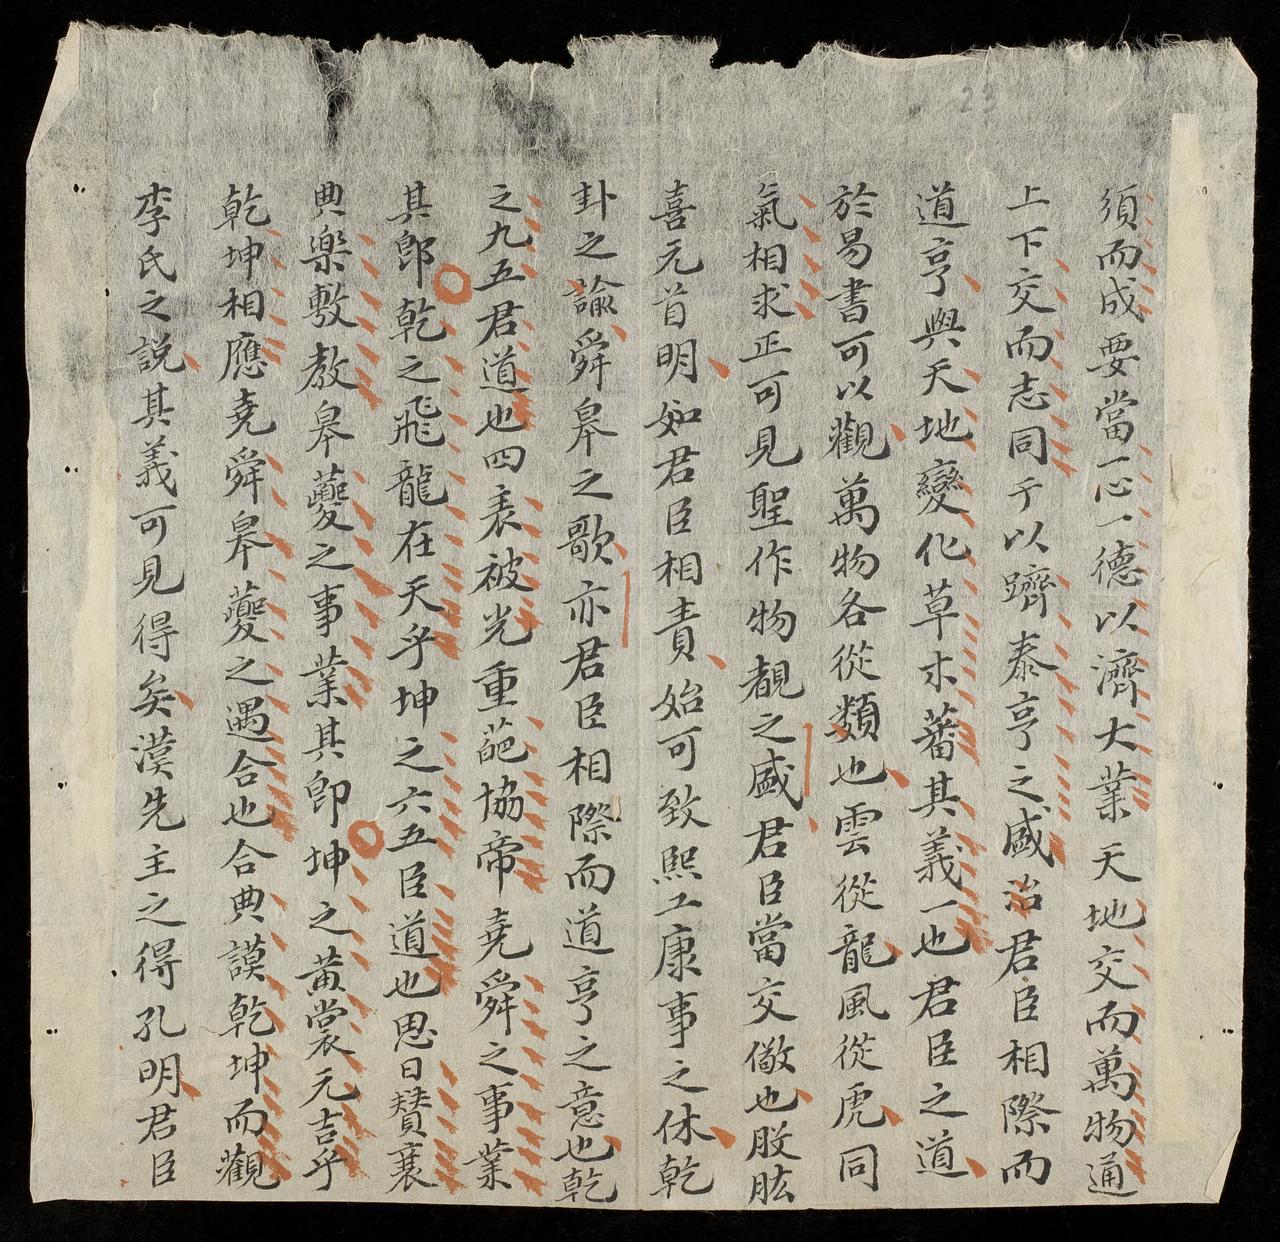 須而成要當一心一德以濟大業天地交而萬物通
上下交而志同于以躋泰亨之盛治君臣相際而
道亨與天地變化草木蕃其義一也君臣之道
於易書可以觀萬物各從類也雲從龍風從虎同
氣相求正可見聖作物覩之盛君臣當交儆也股肱
喜元首明如君臣相責始可致熙工康事之休乾
卦之諭舜皋之歌亦君臣相際而道亨之意也乾
之九五君道也四表被光重葩協帝堯舜之事業
其郎乾之飛龍在天乎坤之六五臣道也思日贊襄
典樂敷教皋夔之事業其即坤之黃裳元吉乎
乾坤相應堯舜皋夔之遇合也合典謨乾坤而觀
李氏之說其義可見得矣漢先主之得孔明君臣
23